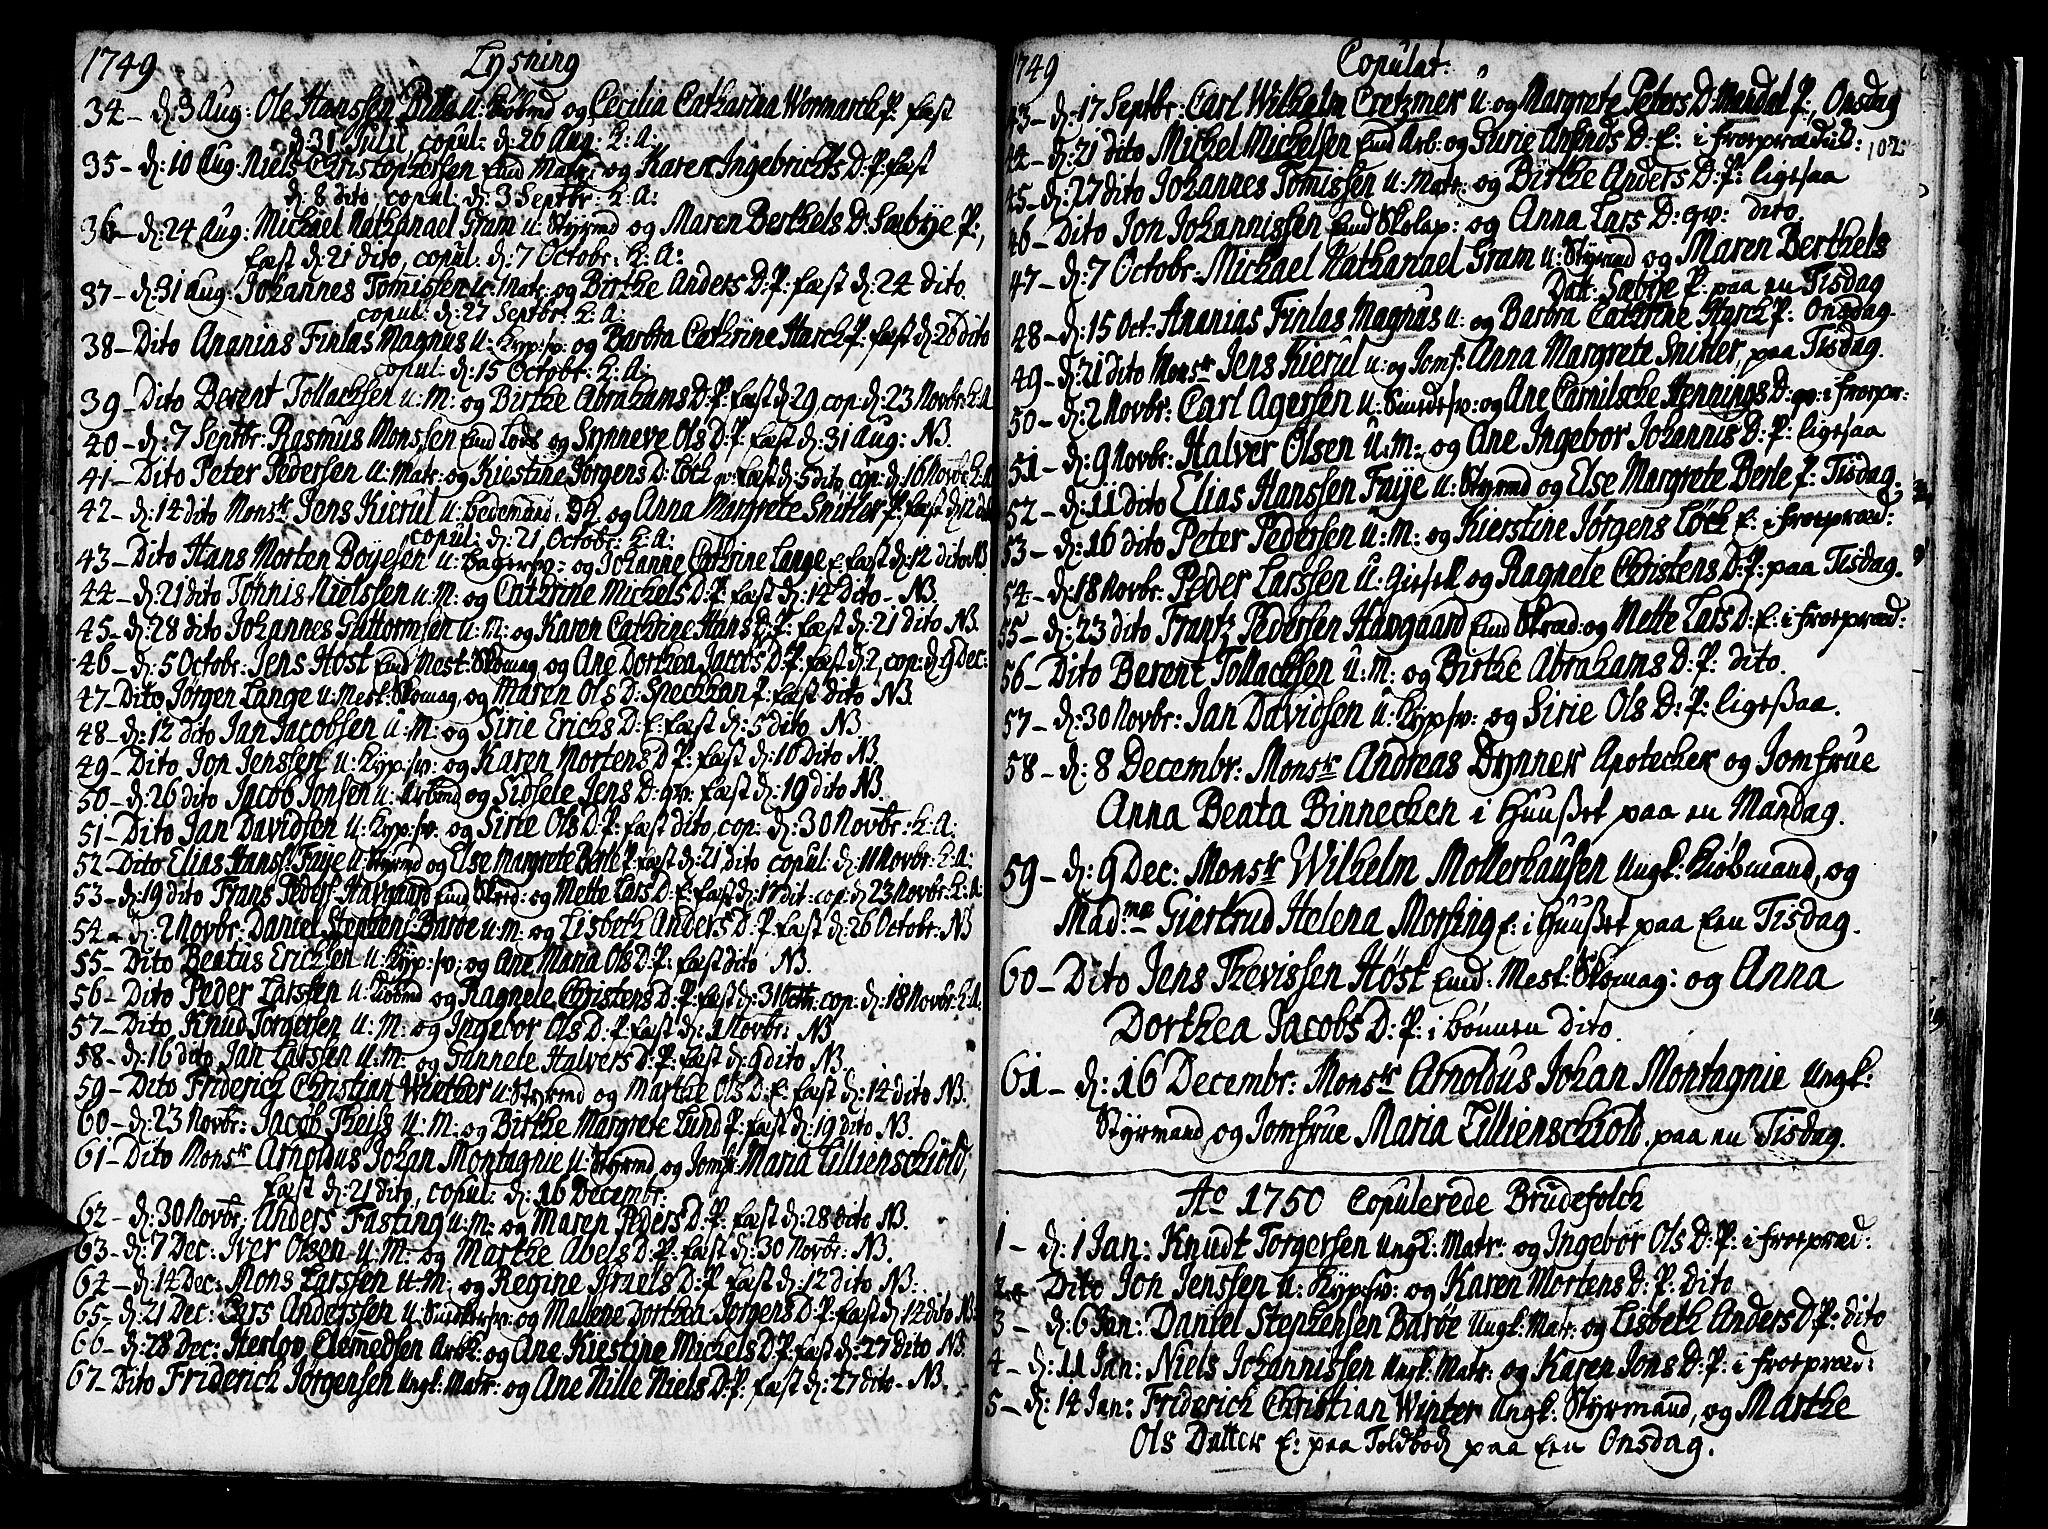 1749 Lysning
34 - d: 3 Aug: Ole Hanssen u: Kiøbmd og Cecilia Catharina Wormarck P: fæst
d: 31 Julii, copul: d: 26 Aug: k: A:
35 - d: 10 Aug: Niels Christophersen End Matr: og Karen Ingebrichts D: P: fæst
d: 8 dito, copul: d: 3 Septbr: k: A:
36 - d: 24 Aug: Michael Nathanael Gram u: Styrmd og Maren Berthels D: Sæbye P:,
fæst d: 21 dito, copul: d: 7 Octobr: k: A:
37 - d: 31 Aug: Johannes Tomissen u: Matr: og Birthe Anders D: P: fæst d: 24 dito.
copul: d: 27 Septbr: k: A:
38 - Dito Ananias Finlas Magnus u: Kyp:sv: og Barbra Cathrine Harck P: fæst d: 28 dito
copul: d: 15 Octobr: k: A:
39 - Dito Berent Tollachsen u: M: og Birthe Abrahams D: P: fæst d: 29, cop: d: 23 Novbr: k: A
40 - d: 7 Septbr: Rasmus Monssen End Lods og Synneve Ols D: P: fæst d: 31 Aug: NB.
41 - Dito Peter Pedersen u: Matr: og Kiestine Jørgens D: Löch gv: fæst d: 5 dito, cop: d: 16 Novbr: k: A
42 - d: 14 dito Monsr Jens Kierul u: og Anna Margrete Snitler P: fæst d: 12 dito
copul: d: 21 Octobr: k: A:
43 - Dito Hans Morten Boyesen u: Bagersv: og Johanne Cathrine Lange E fæst d: 12 dito NB.
44 - d: 21 dito Tønnis Nielssen u: M: og Cathrine Michels D: P: fæst d: 14 Dito - NB.
45 - d: 28 dito Johannes Guttormsen u: M: og Karen Cathrine Hans D: P: fæst d: 21 dito NB.
46 - d: 5 Octobr: Jens Høst End Mest: Skomag: og Ane Dorthea Jacobs D: P: fæst d: 2, cop: d: 9 Dec:
47 - Dito Jørgen Lange u: Mest: Skomag: og Maren Ols D: Spechhan P: fæst dito NB.
48 - d: 12 dito Jan Jacobsen u: M: og Sirie Erichs D: E: fæst d: 5 dito NB.
49 - Dito Jon Jenssen u: Kyp:sv: og Karen Mortens D: P: fæst d: 10 Dito NB.
50 - d: 26 dito Jacob Jonsen u: Arbmd og Sidsele Jens D: gv: fæst d: 19 dito NB.
51 - Dito Jan Davidsen u: Kyp:sv: og Sirie Ols D: P: fæst dito, cop: d: 30 Novbr: k: A:
52 - Dito Elias Hanss: Faye u: Styrmd og Else Margrete Berle P: fæst d: 21 dito copul: d: 11 Novbr: k: A:
53 - d: 19 dito Frans Peders: Havgaard End Skred: og Mette Lars D: E: fæst d: 17 dit: cop: d: 23 Novbr: k: A:
54 - d: 2 Novbr: Daniel Stephens: Barøe u: m: og Lisbeth Anders D: P: fæst d: 26 Octobr: NB
55 - Dito Beatus Erichsen u: Kyp:sv: og Ane Maria Ols D: P: fæst dito NB.
56 - Dito Peder Larssen u: Kiøbmd og Ragnele Christens D: P: fæst d: 31 Octb: cop: d: 18 Novbr: k: A.
57 - Dito Knud Torgersen u: M: og Ingebor Ols D: P: fæst d: 1 Novbr: NB
58 - d: 16 dito Jan Larssen u: m: og Gunnele Halvers D: P: fæst d: 9 dito NB.
59 - Dito Friderich Christian Winther u: Styrmd og Marthe Ols D: E: fæst d: 14 dito NB.
60 - d: 23 Novbr: Jacob Theiss u: M: og Birthe Margrete Lund P: fæst d: 19 dito NB.
61 - Dito Monsr Arnoldus Johan Montagnie u: Styrmd og Jomfr: Maria Lillienschiold,
fæst d: 21 dito, copul: d: 16 Decembr.
62 - d: 30 Novbr: Anders Fasting u: m: og Maren Peders D: P: fæst d: 28 dito NB.
63 - d: 7 Dec: Iver Olsen u: M: og Marthe Abels D: P: fæst d: 30 Novbr: NB.
64 - d: 14 Dec: Mons Larssen u: M: og Regine Isaels D: P: fæst d: 12 dito NB:
65 - d: 21 Dec: Lars Anderssen u: Snedkersv: og Mallene Dorthea Jørgens D: P: fæst d: 14 dito NB.
66 - d: 28 Dec: Herlov Clemmedsen Arb: og Ane Kiestine Michels D: P: fæst d: 27 dito NB.
67 - Dito Friderich Jørgensen ungk: Matr: og Ane Nille Niels D: P: fæst d: 27 dito - NB.
1749 Copulat:
43 - d: 17 Septbr: Carl Wilhelm Cretzmer u: og Margrete Peters D: Mandal P:, Onsdag
44 - d: 21 dito Michel Michelsen End Arb: og Gurie Amunds D: E: i froeprædik: 102:
45 - d: 27 dito Johannes Tomissen u: Matr: og Birthe Anders D: P: ligesaa
46 - Dito Jon Johannissen End Skolap: og Anna Lars D: gv: dito.
47 - d: 7 Octobr: Michael Nathanael Gram u: Styrmd og Maren Berthels
Datt: Sæbye P: paa en Tisdag
48 - d: 15 Oct: Ananias Finlas Magnus u: og Barbra Cathrine Harck P: Onsdag.
49 - d: 21 dito Monsr Jens Kierul u: og Jomf: Anna Margrete Snitler, paa Tisdag.
50 - d: 2 Novbr: Carl Agersen u: Smedesv: og Ane Carnilsche Hennings D: gv: i froepr:
51 - d: 9 Novbr: Halver Olsen u: m: og Ane Ingebor Johannis D: P: ligesaa
52 - d: 11 dito Elias Hanssen Faye u: Styrmd og Else Margrete Berle P: Tisdag.
53 - d: 16 dito Peter Pedersen u: M: og Kierstine Jørgens Löck E: i froepræd:
54 - d: 18 Novbr: Peder Larssen u: og Ragnele Christens D: P: paa Tisdag.
55 - d: 23 dito Frantz Pedersen Havgaard End Skræd: og Mette Lars D: E: i froepræd:
56 - Dito Berent Tollachsen u: M: og Birthe Abrahams D: P: dito.
57 - d: 30 Novbr: Jan Davidsen u: Kyp:sv: og Sirie Ols D: P: ligeßaa.
58 - d: 8 Decembr: Monsr Andreas Drynner Apotecher og Jomfrue
Anna Beata Binnechen i Huußet paa en Mandag.
59 - d: 9 Dec: Monsr Wilhelm Mollerhausen Ungk: Kiøbmand, og
Madme Giertrud Helena Morsing E: i Huußet paa Een Tisdag.
60 - Dito Jens Thevissen Høst End: Mest: Skomag: og Anna
Dorthea Jacobs D: P: i bønnen dito.
61 - d: 16 Decembr: Monsr Arnoldus Johan Montagnie Ungk:
Styrmand og Jomfrue Maria Lillienschiold, paa en Tisdag.
Ao 1750 Copulerede Brudefolck
1 - d: 1 Jan: Knudt Torgersen Ungk: Matr: og Ingebor Ols D: P: i froepræd:
2 - Dito Jon Jenssen u: Kyp:sv: og Karen Mortens D: P: dito
3 - d: 6 Jan: Daniel Stephensen Barøe Ungk: Matr: og Lisbeth Anders D: P: dito
4 - d: 11 Jan: Niels Johannissen Ungk: Matr: og Karen Jons D: P: i froepræd:
5 - d: 14 Jan: Friderich Christian Winter Ungk: Styrmand, og Marthe
Ols Datter E: paa Toldbod paa Een Onsdag.